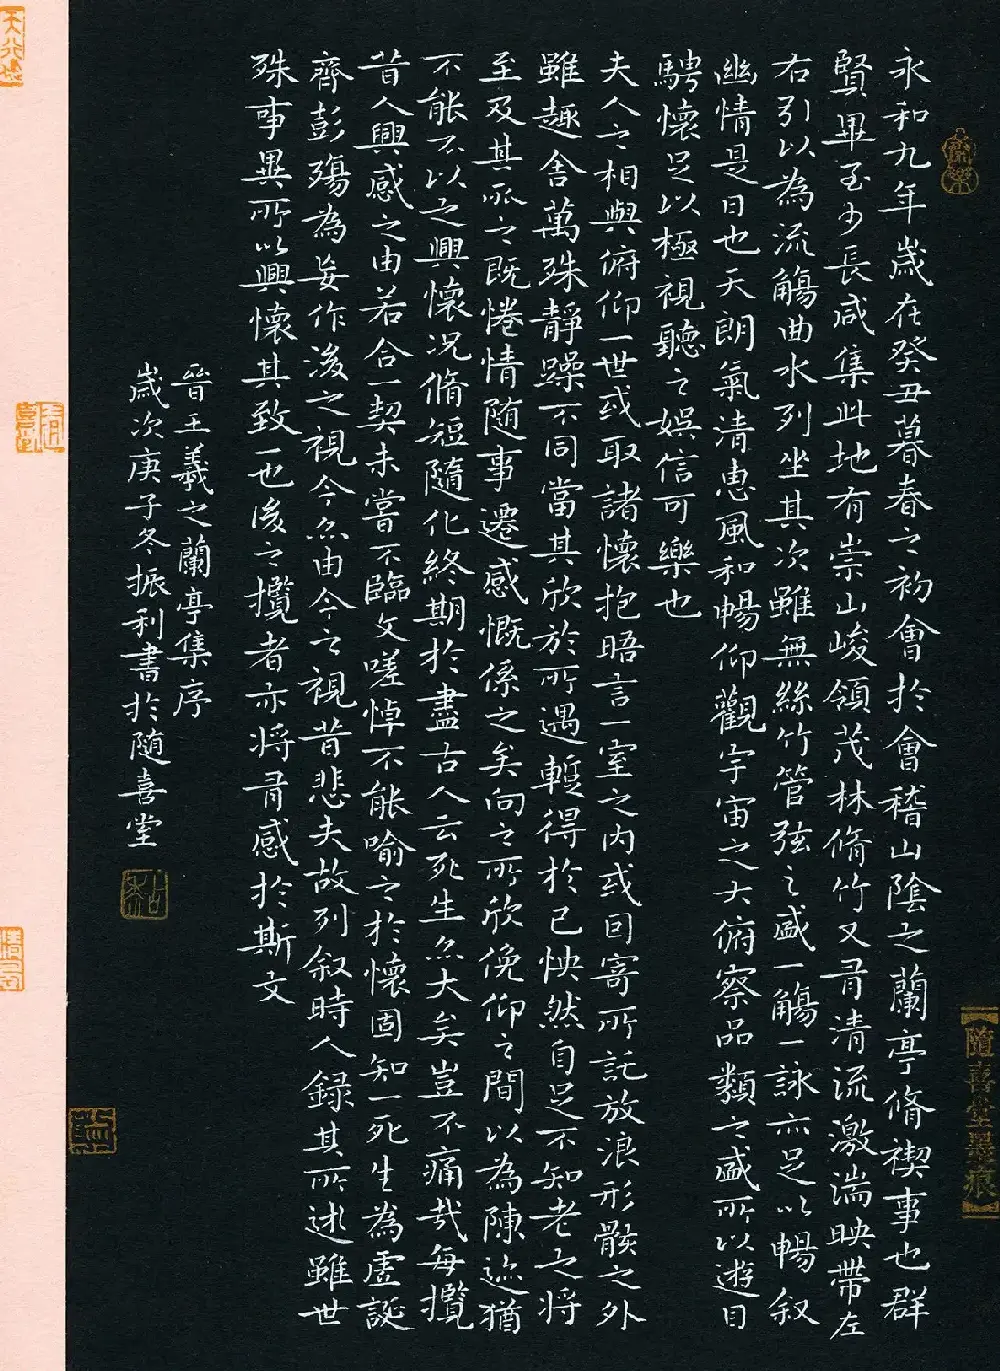 永和九年歲在癸丑暮春之初會於會稽山陰之蘭亭脩禊事也群
賢畢至少長咸集此地有崇山峻領茂林脩竹又有清流激湍映帶左
右引以為流觴曲水列坐其次雖無絲竹管弦之盛一觴一詠亦足以暢叙
幽情是日也天朗氣清惠風和暢仰觀宇宙之大俯察品類之盛所以遊目
騁懷足以極視聽之娛信可樂也
夫人之相與俯仰一世或取諸懷抱晤言一室之內或因寄所託放浪形骸之外
雖趣舍萬殊靜躁不同當其欣於所遇暫得於己怏然自足不知老之將
至及其所之既惓情隨事遷感慨係之矣向之所欣俛仰之間以為陳迹猶
不能不以之興懷況脩短隨化終期於盡古人云死生亦大矣豈不痛哉每攬
昔人興感之由若合一契未嘗不臨文嗟悼不能喻之於懷固知一死生為虛誕
齊彭殤為妄作後之視今亦由今之視昔悲夫故列叙時人錄其所述雖世
殊事異所以興懷其致一也後之攬者亦將有感於斯文
晉王羲之蘭亭集序
歲次庚子冬振利書於隨喜堂
隨喜堂墨痕